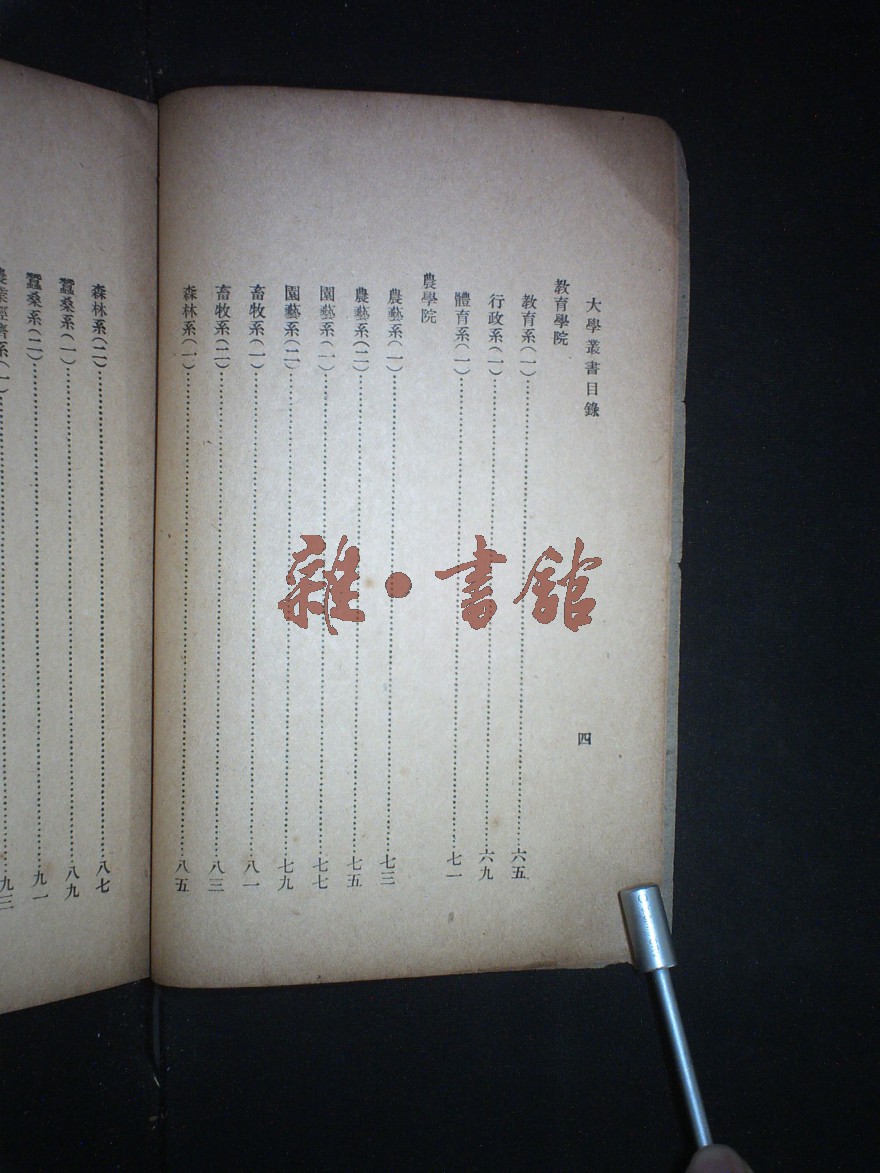 大學叢書目錄
四
教育學院
教育系(一)……六五
行政系(一)……六九
體育系(一)……七一
農學院
農藝系(一)……七三
農藝系(二)……七五
園藝系(一)……七七
園藝系(二)……七九
畜牧系(一)……八一
畜牧系(二)……八三
森林系(一)……八五
森林系(二)……八七
蠶桑系(一)……八九
蠶桑系(二)……九一
農業經濟系(一)……九三
雜·書館